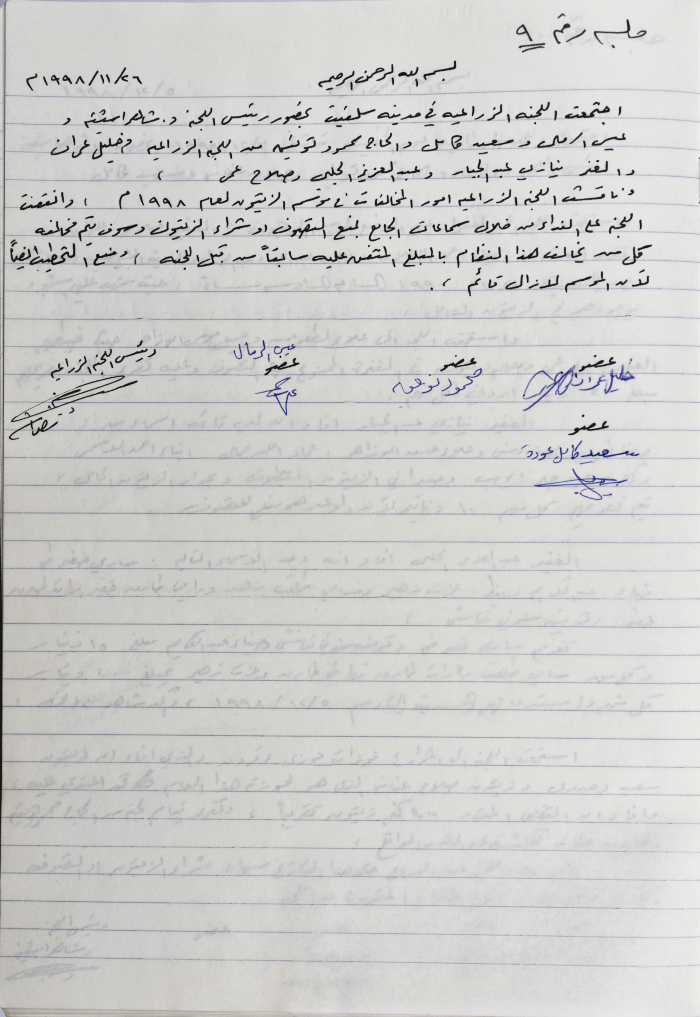 جلسه رقم ٩
بسم الله الرحمن الرحيم
٢٦/١١/١٩٩٨م
اجتمعت اللجنه الزراعيه في مدينه سلفيت بحضور رئيس اللجنه د. شاهر اشتيه و
عيسى الرمال و سعيد كامل والحاج محمود من اللجنه الزراعيه وخليل عمران
والغفر نيازي عبد الجبار وعبد العزيز الحلبي وصلاح عمر ،
وناقشت اللجنه الزراعيه امور المخالفات في موسم الزيتون لعام ١٩٩٨م ، واتفقت
اللجنة على النداء من خلال سماعات الجامع لمنع او شراء الزيتون وسوف يتم مخالفه
كل من يخالف هذا النظام بالمبلغ المتفق عليه سابقاً من قبل اللجنه ، ومنع التحطيب ايضاً
لأن الموسم لازال قائم .
رئيس اللجنه الزراعيه
عيسى الرمال
عضو
عضو
محمود
عضو
خليل عمران
عضو
سعيد كامل عودة